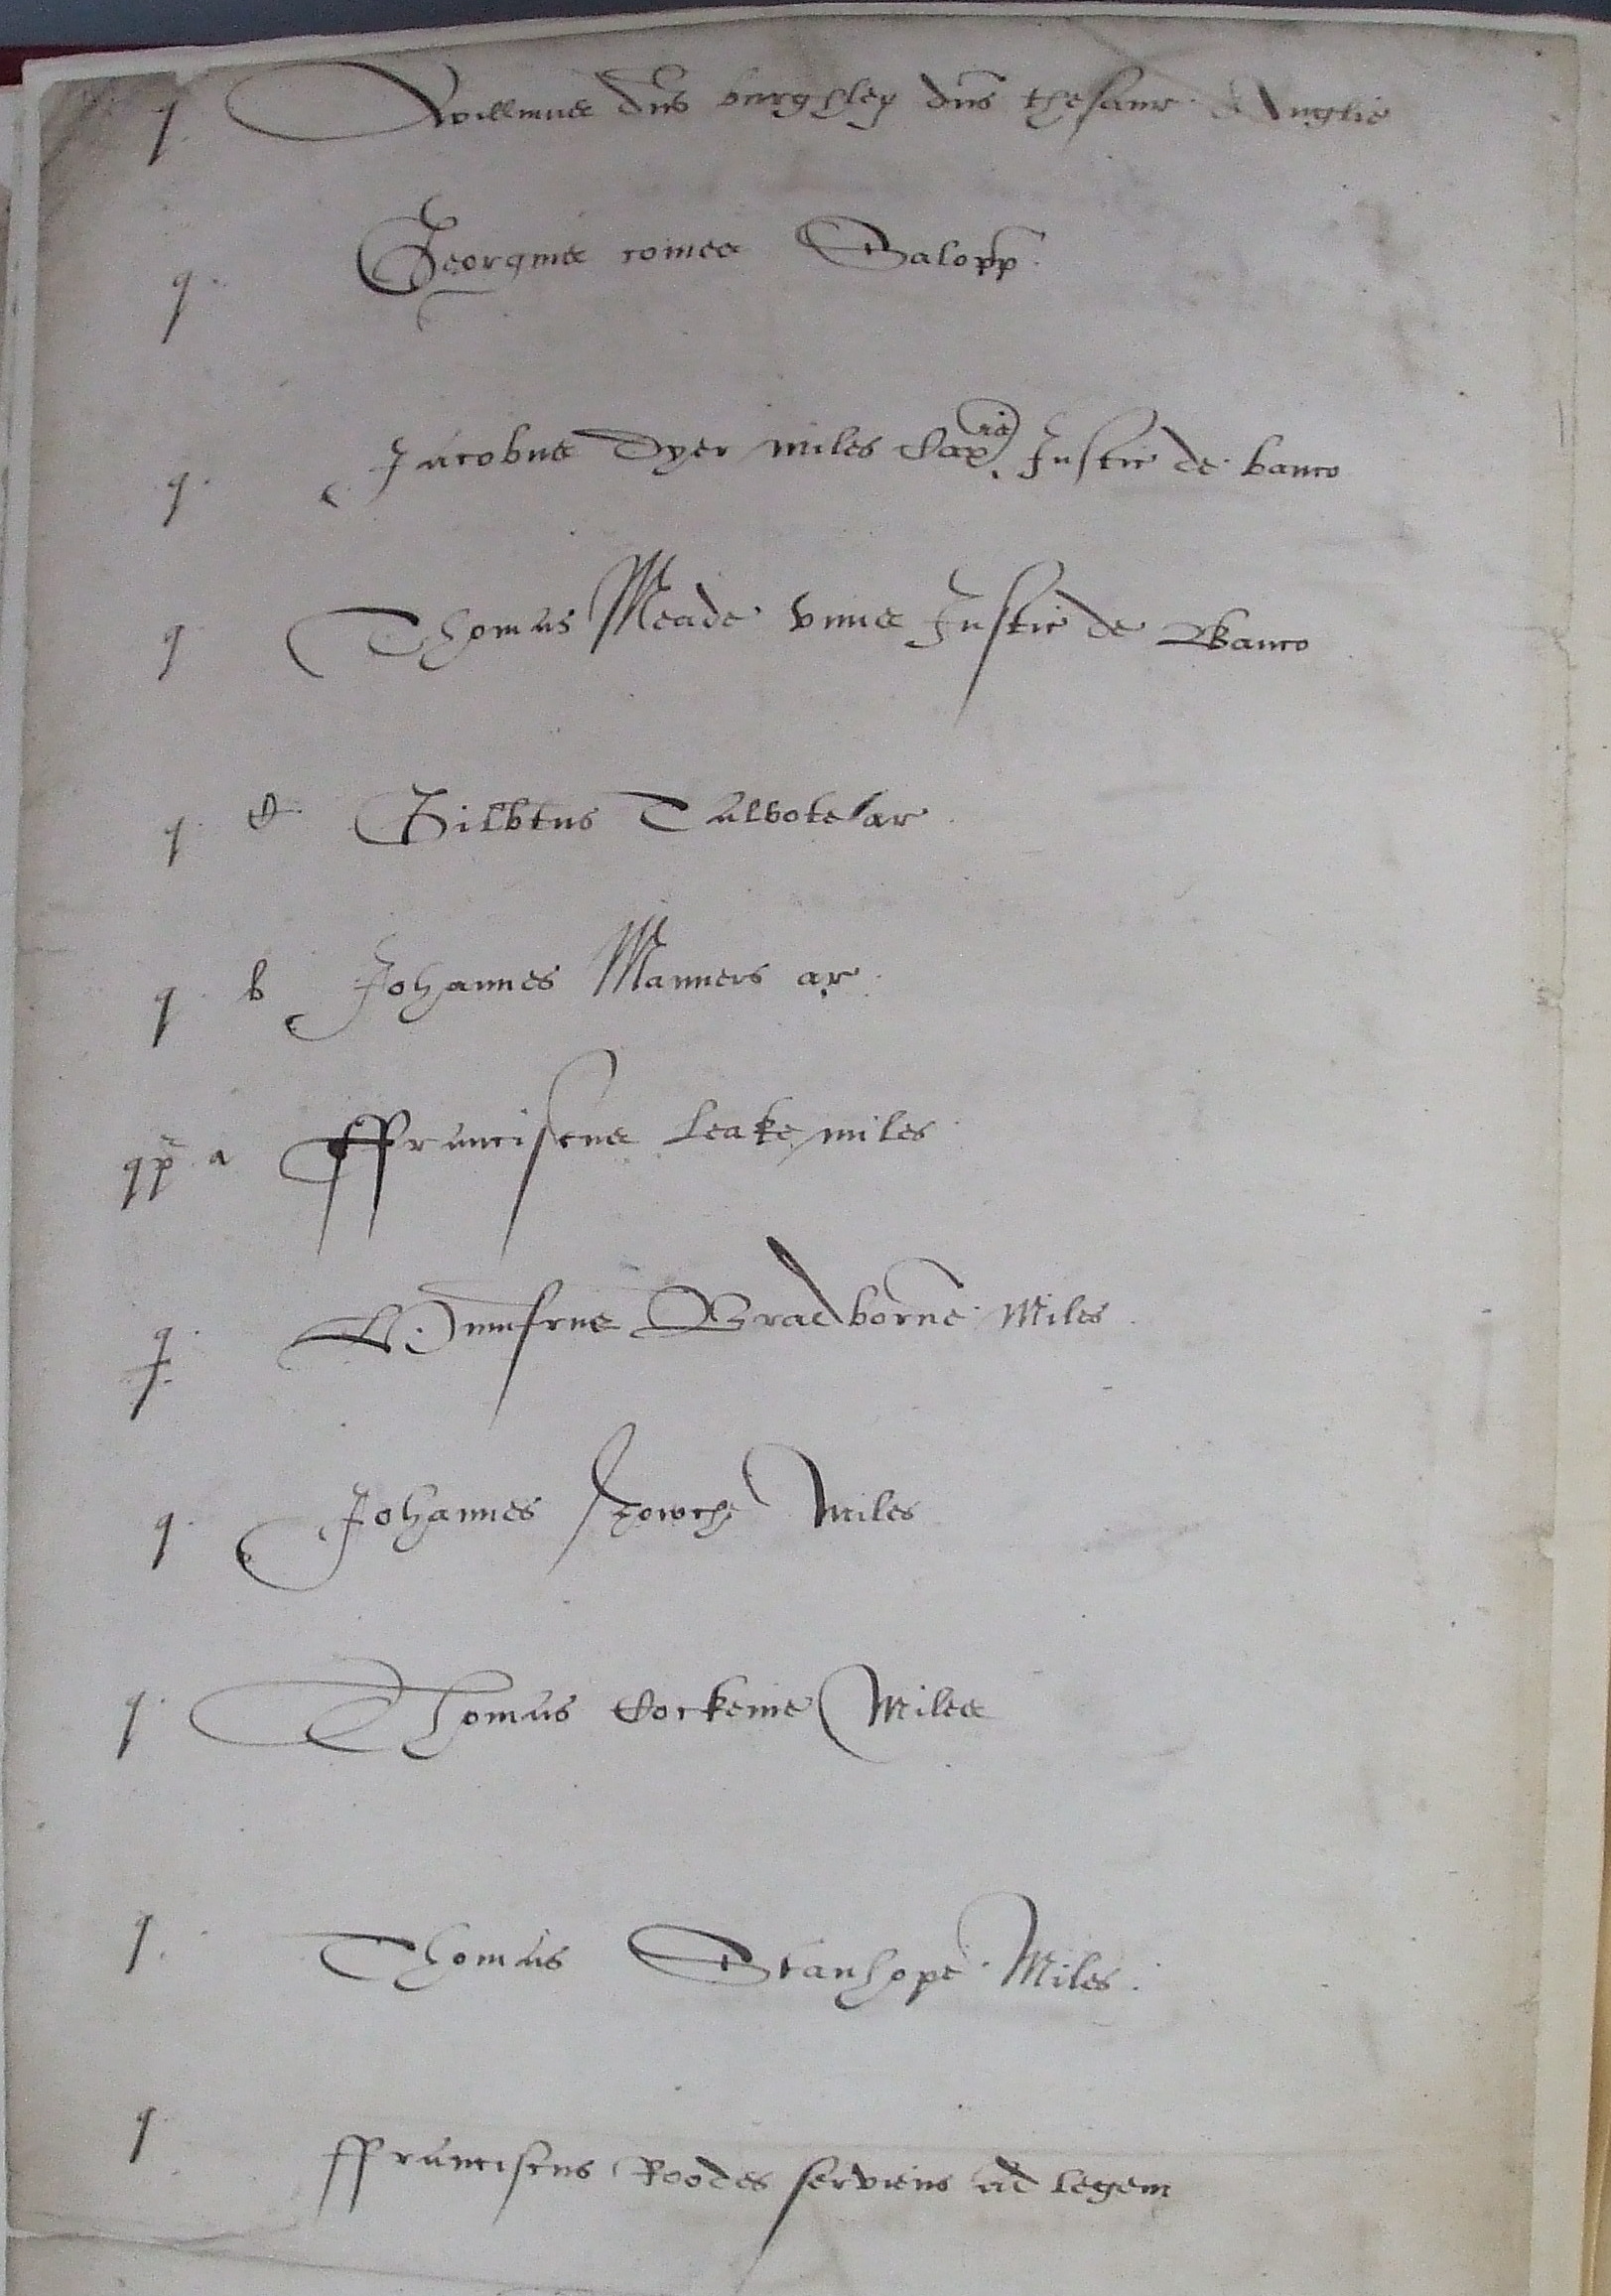 q Willmus dns burghley dns thesaur Anglie
q Georgius comes Salopp
q Jacobus Dyer miles Cap^lis Justic de banco
q Thomas Meade unus Justic de Banco
q Gilbtus Talbote ar
q b Johannes Manners ar
qp a ffranciscus Leake miles
q Humfrus Bradborne Miles
q Johannes Zowch Miles
q Thomas Cockeine Miles
q Thomas Stanhope Miles
q ffranciscus Roodes serviens ad legem